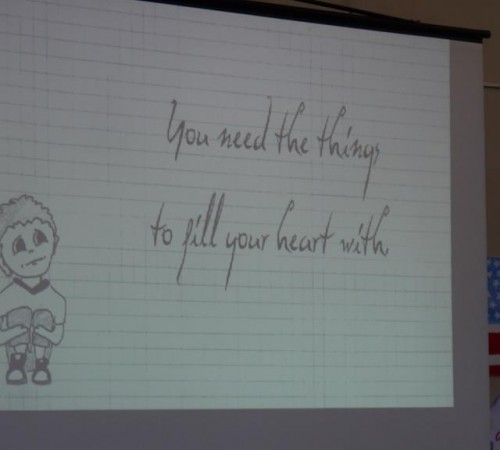 You need the things
to fill your heart with